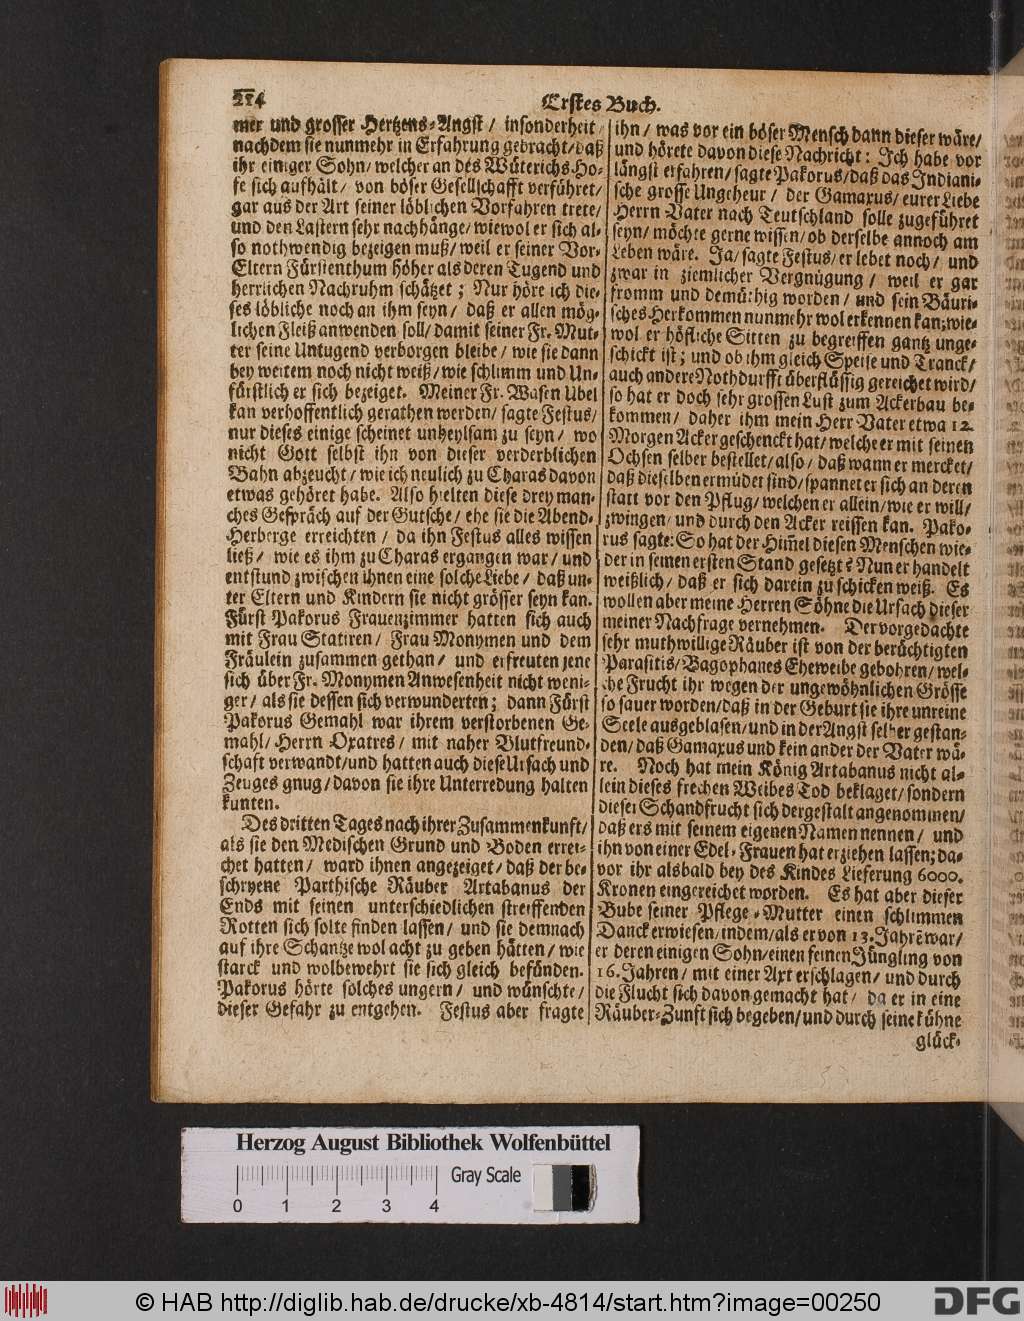 214
Erstes Buch.
mer und grosser Hertzens-Angst / insonderheit /
nachdem sie nunmehr in Erfahrung gebracht / daß
ihr einiger Sohn / welcher an des Wüterichs Ho-
fe sich aufhält / von böser Gesellschafft verführet /
gar aus der Art seiner löblichen Vorfahren trete /
und den Lastern sehr nachhänge / wiewol er sich al-
so nothwendig bezeigen muß / weil er seiner Vor-
Eltern Fürstenthum höher als deren Tugend und
herrlichen Nachruhm schätzet ; Nur höre ich die-
ses löbliche noch an ihm seyn / daß er allen mög-
lichen Fleiß anwenden soll / damit seiner Fr. Mut-
ter seine Untugend verborgen bleibe / wie sie dann
bey weitem noch nicht weiß / wie schlimm und Un-
fürstlich er sich bezeiget. Meiner Fr. Wasen Ubel
kan verhoffentlich gerathen werden / sagte Festus /
nur dieses einige scheinet unheylsam zu seyn / wo
nicht Gott selbst ihn von dieser verderblichen
Bahn abzeucht / wie ich neulich zu Charas davon
etwas gehöret habe. Also hielten diese drey man-
ches Gespräch auf der Gutsche / ehe sie die Abend-
Herberge erreichten / da ihn Festus alles wissen
ließ / wie es ihm zu Charas ergangen war / und
entstund zwischen ihnen eine solche Liebe / daß un-
ter Eltern und Kindern sie nicht grösser seyn kan.
Fürst Pakorus Frauenzimmer hatten sich auch
mit Frau Statiren / Frau Monymen und dem
Fräulein zusammen gethan / und erfreuten jene
sich über Fr. Monymen Anwesenheit nicht weni-
ger / als sie dessen sich verwunderten ; dann Fürst
Pakorus Gemahl war ihrem verstorbenen Ge-
mahl / Herrn Oxatres / mit naher Blutfreund-
schaft verwandt / und hatten auch diese Ursach und
Zeuges gnug / davon sie ihre Unterredung halten
kunten.
Des dritten Tages nach ihrer Zusammenkunft /
als sie den Medischen Grund und Boden errei-
chet hatten / ward ihnen angezeiget / daß der be-
schryene Parthische Räuber Artabanus der
Ends mit seinen unterschiedlichen streiffenden
Rotten sich solte finden lassen / und sie demnach
auf ihre Schantze wol acht zu geben hätten / wie
starck und wolbewehrt sie sich gleich befünden.
Pakorus hörte solches ungern / und wünschte /
dieser Gefahr zu entgehen. Festus aber fragte
ihn / was vor ein böser Mensch dann dieser wäre /
und hörete davon diese Nachricht : Ich habe vor
längst erfahren / sagte Pakorus / daß das Indiani-
sche grosse Ungeheur / der Gamaxus / eurer Liebe
Herrn Vater nach Teutschland solle zugeführet
seyn / möchte gerne wissen / ob derselbe annoch am
Leben wäre. Ja / sagte Festus / er lebet noch / und
zwar in ziemlicher Vergnügung / weil er gar
fromm und demüthig worden / und sein Bäuri-
sches Herkommen nunmehr wol erkennen kan ; wie-
wol er höfliche Sitten zu begreiffen gantz unge-
schickt ist ; und ob ihm gleich Speise und Tranck /
auch andere Nothdurfft überflüssig gereichet wird /
so hat er doch sehr grossen Lust zum Ackerbau be-
kommen / daher ihm mein Herr Vater etwa 12.
Morgen Acker geschenckt hat / welche er mit seinen
Ochsen selber bestellet / also / daß wann er mercket /
daß dieselben ermüdet sind / spannet er sich an deren
statt vor den Pflug / welchen er allein / wie er will /
zwingen / und durch den Acker reissen kan. Pako-
rus sagte: So hat der Him̃el diesen Menschen wie-
der in seinen ersten Stand gesetzt ? Nun er handelt
weißlich / daß er sich darein zu schicken weiß. Es
wollen aber meine Herren Söhne die Ursach dieser
meiner Nachfrage vernehmen. Der vorgedachte
sehr muthwillige Räuber ist von der berüchtigten
Parasitis / Vagophanes Eheweibe gebohren / wel-
che Frucht ihr wegen der ungewöhnlichen Grösse
so sauer worden / daß in der Geburt sie ihre unreine
Seele ausgeblasen / und in der Angst selber gestan-
den / daß Gamaxus und kein ander der Vater wä-
re. Noch hat mein König Artabanus nicht al-
lein dieses frechen Weibes Tod beklaget / sondern
dieser Schandfrucht sich dergestalt angenommen /
daß ers mit seinem eigenen Namen nennen / und
ihn von einer Edel-Frauen hat erziehen lassen ; da-
vor ihr alsbald bey des Kindes Lieferung 6000.
Kronen eingereichet worden. Es hat aber dieser
Bube seiner Pflege-Mutter einen schlimmen
Danck erwiesen / indem / als er von 13. Jahrẽ war /
er deren einigen Sohn / einen feinen Jüngling von
16. Jahren / mit einer Axt erschlagen / und durch
die Flucht sich davon gemacht hat / da er in eine
Räuber-Zunft sich begeben / und durch seine kühne
glück-
Herzog August Bibliothek Wolfenbüttel
Gray Scale
0 1 2 3 4
© HAB http://diglib.hab.de/drucke/xb-4814/start.htm?image=00250
DFG